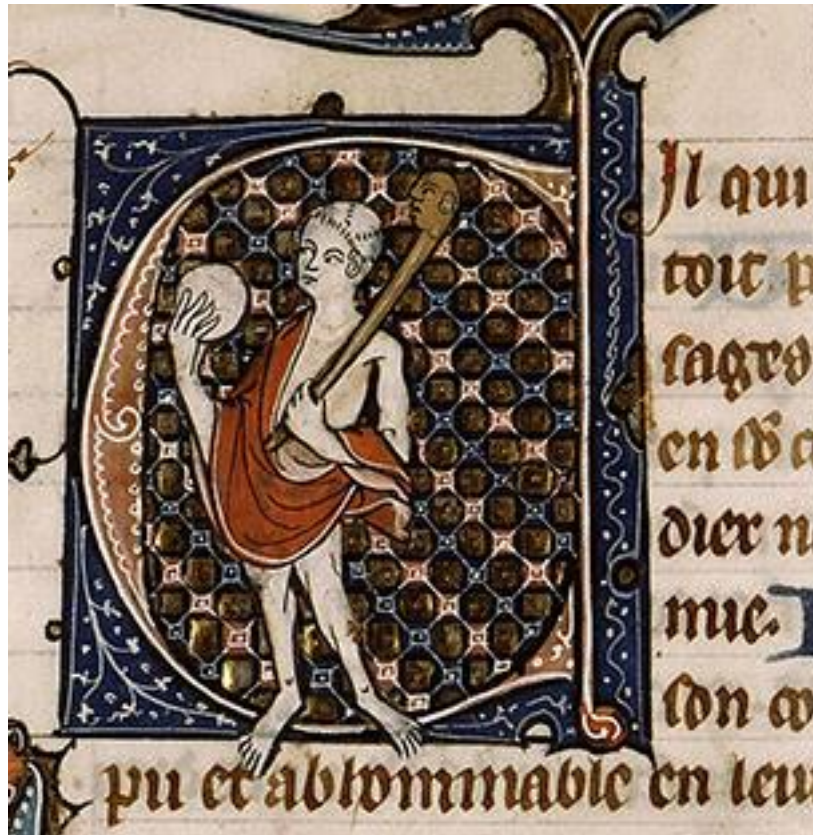 Cil qui
toit p
sages
en sō c
dier n
mie.
son co
pu et abhominable en leur